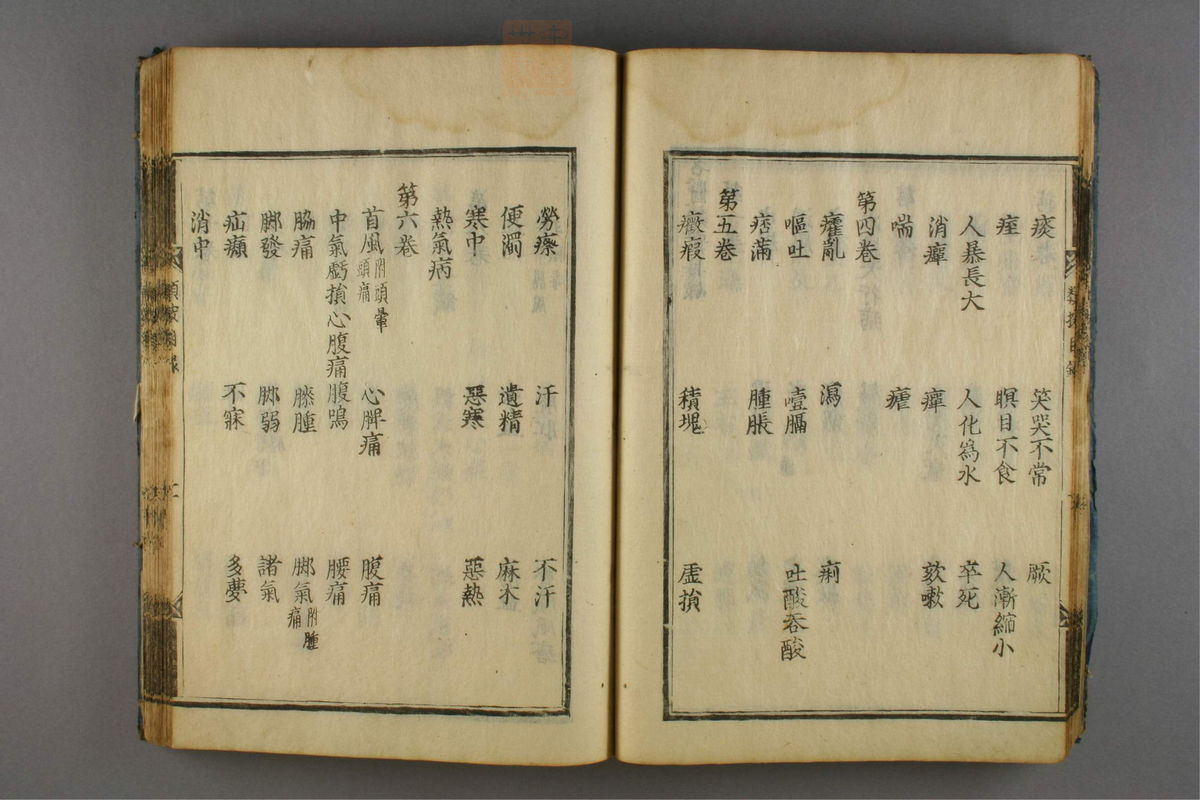 痰 笑哭不常 厥
痓 瞑目不食 人漸縮小
人暴長大 人化爲水 卒死
消癉 癉 欬嗽
喘 瘧
第四卷
癨亂 瀉 痢
嘔吐 噎膈 吐酸吞酸
痞滿 腫脹
第五卷
癥瘕 積塊 虛損
勞瘵 汗 不汗
便濁 遺精 麻木
寒中 惡寒 惡熱
熱氣病
第六卷
首風附頭暈頭痛 心脾痛 腹痛
中氣虧損心腹痛 腹鳴 腰痛
脇痛 膝腫 脚氣附腫痛
脚發 脚弱 諸氣
疝㿗 不寐 多夢
消中